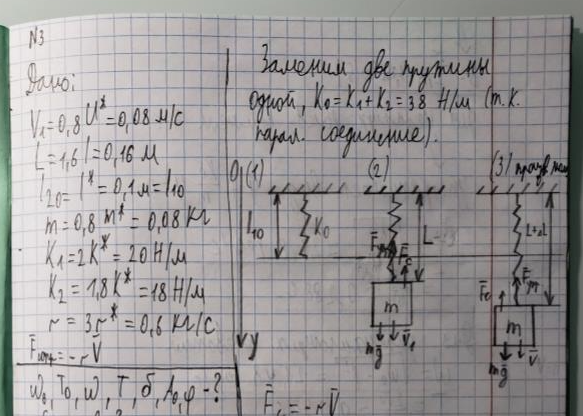 N3
Дано:
V₁=0,8 U*=0,08 м/с
L=1,6 l=0,16 м
l₂₀=l*=0,1 м=l₁₀
m=0,8 m*=0,08 кг
K₁=2K*=20 Н/м
K₂=1,8K*=18 Н/м
r=3r*=0,6 кг/с
F̅сопр=-rV̅
ω₀, T₀, ω, T, δ, A₀, φ-?
Заменим две пружины
одной, K₀=K₁+K₂=38 Н/м (т.к.
парал. соединение).
0 (1)
(2)
(3)
l₁₀
K₀
L
L+ΔL
F̅c
F̅c
m
m
V̅₁
V̅
mg̅
mg̅
y
F̅c=-rV̅